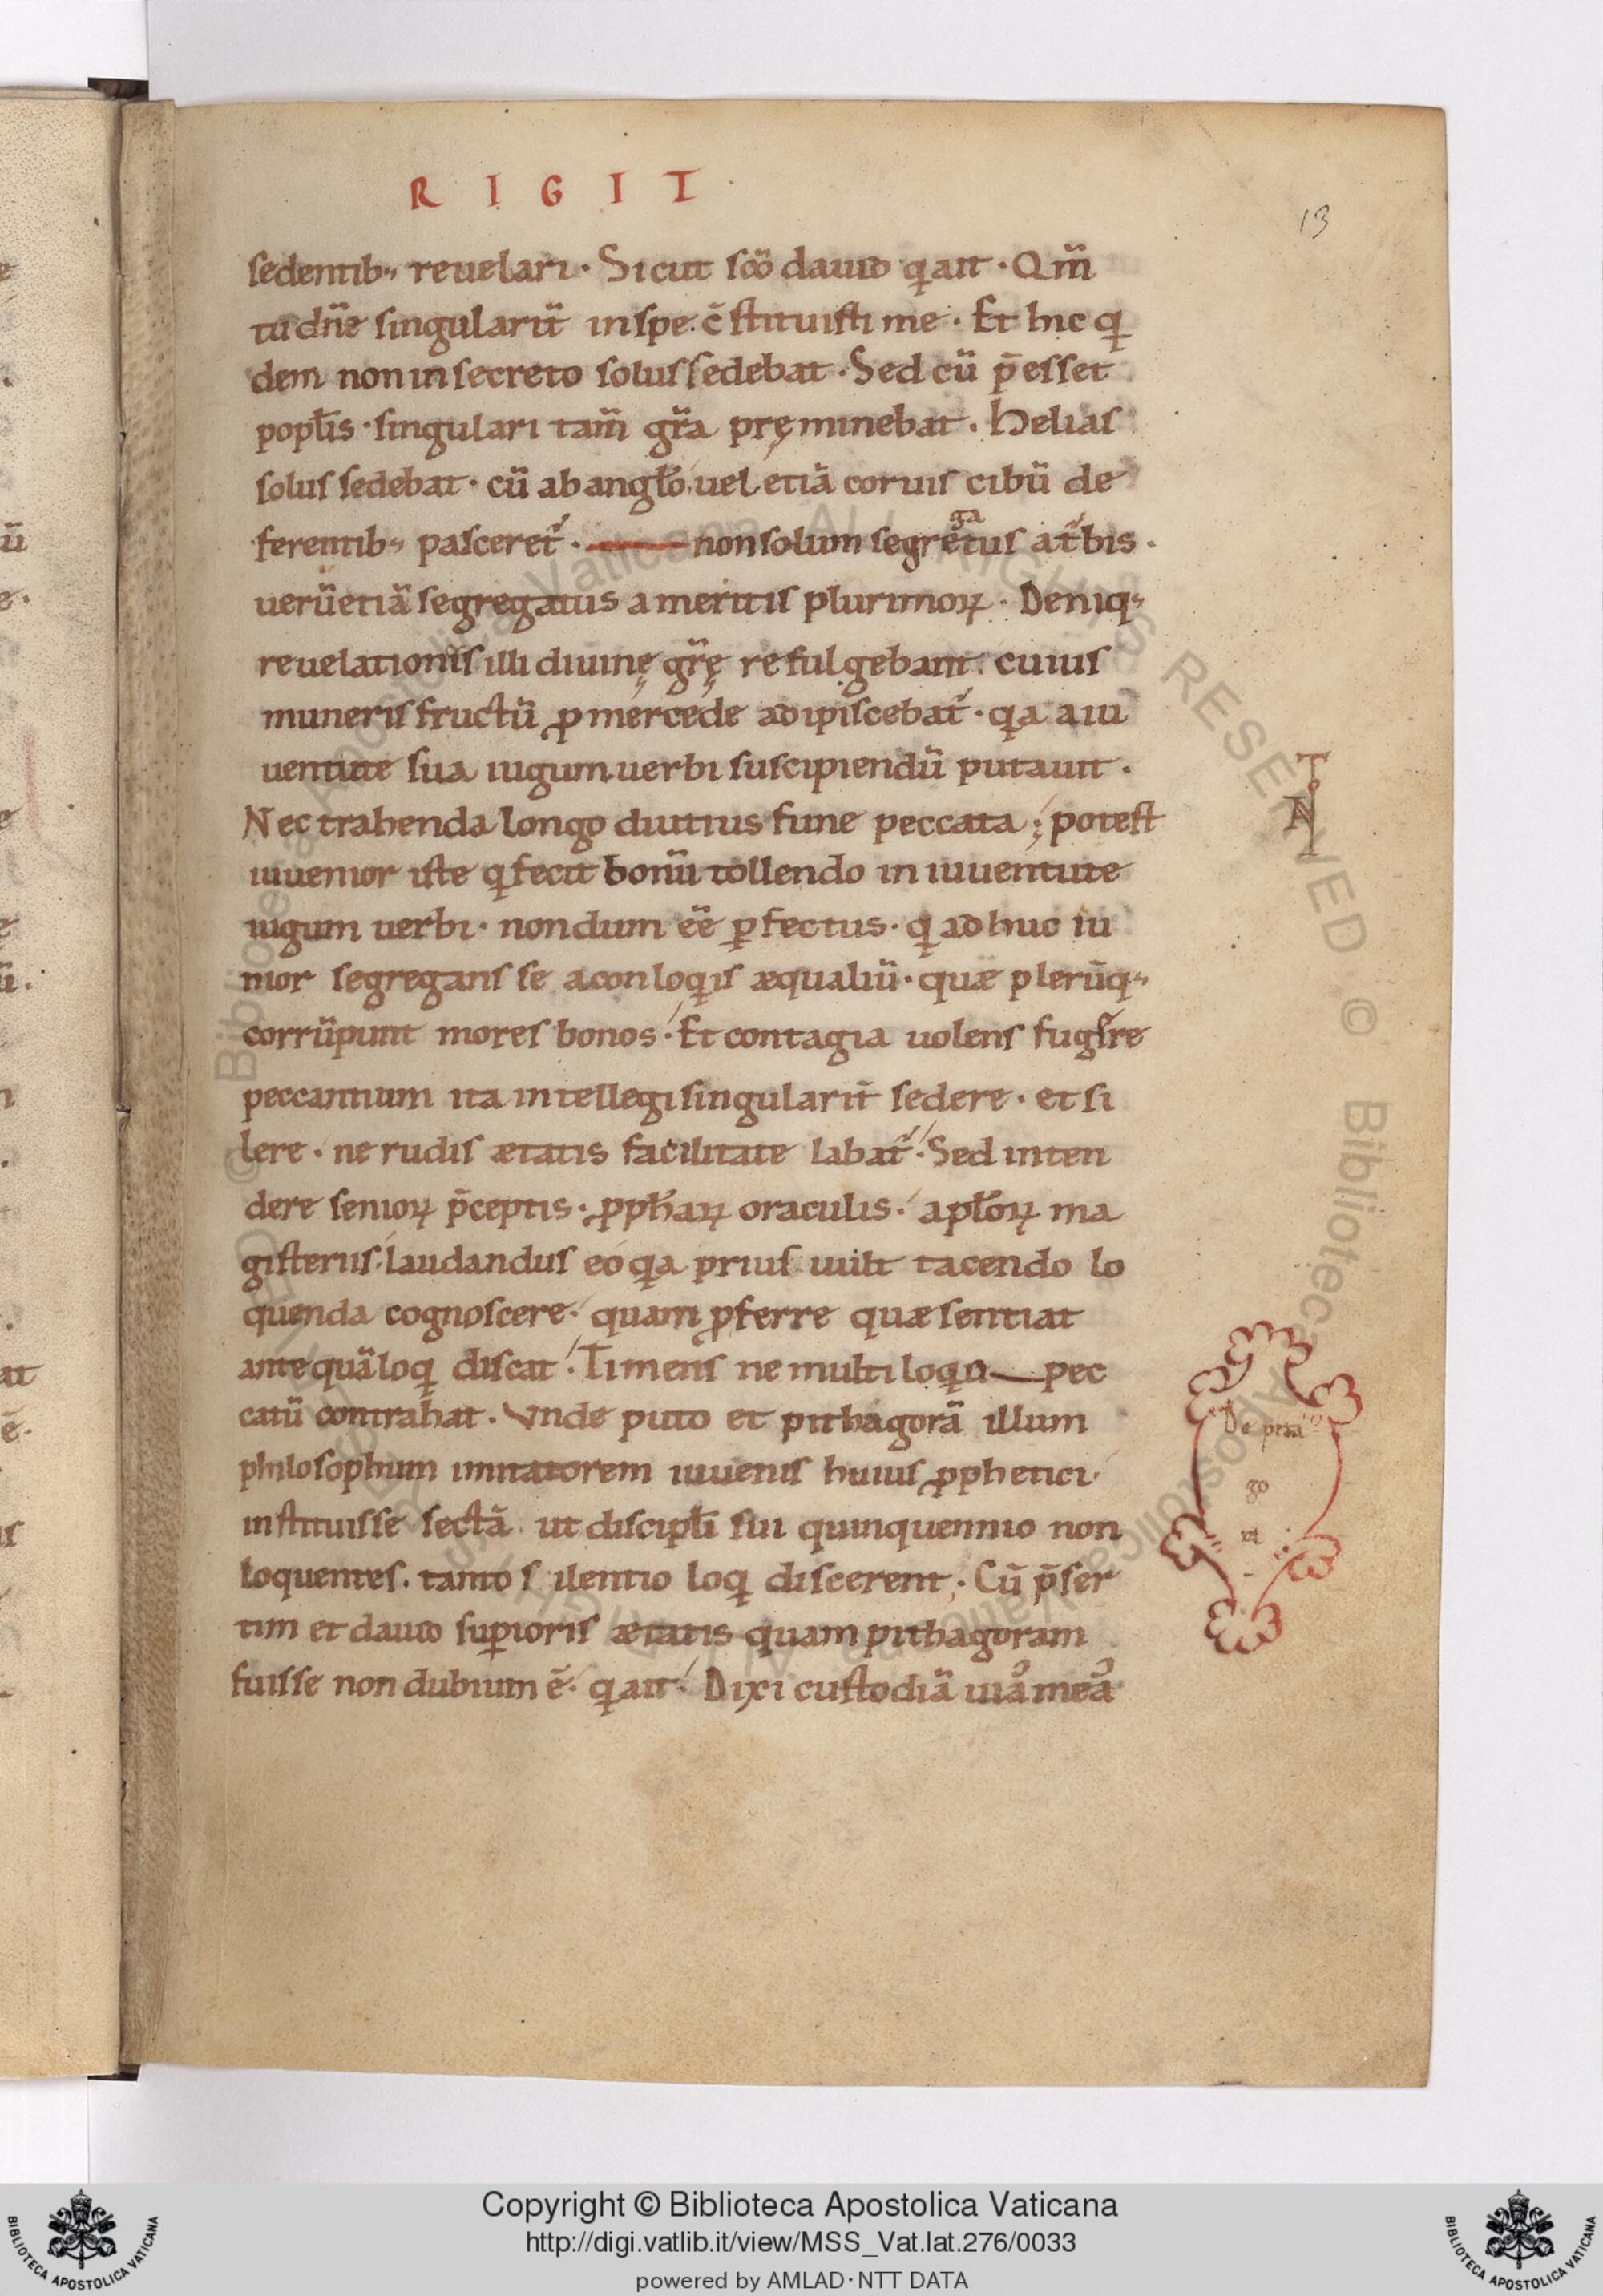 R I G I T
13
sedentib; reuelari. Sicut sc̄o dauid q̣ ait. Qm̄
tu dn̄e singularit̄ in spe c̄stituisti me. Et hic q̣
dem non in secreto solus sedebat. Sed cū p̄esset
popłis. singulari tam̄ gr̄a pręminebat. Helias
solus sedebat. cū ab angło uel etiā coruis cibū de
ferentib; pasceret᷑. non solum segregatus a t᷑bis.
uerū etiā segregatus a meritis plurimoꝝ. Deniq;
reuelationis illi diuinę gr̄ę refulgebant. cuius
muneris fructū ꝓ mercede adipiscebat᷑. q̣a a iu
uentute sua iugum uerbi suscipiendū putauit.
Nec trahenda longo diutius fune peccata; potest
iuuenior iste q̣ fecit bonū tollendo in iuuentute
iugum uerbi. nondum eē ꝑfectus. q̣ adhuc iu
nior segregans se a conloq̣is æqualiū. quæ plerūq;
corrūpunt mores bonos. Et contagia uolens fugere
peccantium ita intellegi singularit̄ sedere. et si
lere. ne rudis ætatis facilitate labat᷑. Sed inten
dere senioꝝ p̄ceptis. ꝓpħaꝝ oraculis. apłoꝝ ma
gisteriis. laudandus eo q̣a prius uult tacendo lo
quenda cognoscere. quam ꝓferre quæ sentiat
ante quā loq̣ discat. Timens ne multiloq̣o pec
catū contrahat. Vnde puto et pithagorā illum
philosophum imitatorem iuuenis huius ꝓphetici
instituisse sectā. ut discipłi sui quinquennio non
loquentes. tanto silentio loq̣ discerent; Cū p̄ser
tim et dauid suꝑioris ætatis quam pithagoram
fuisse non dubium ē. q̣ ait. Dixi custodiā uiā meā
go